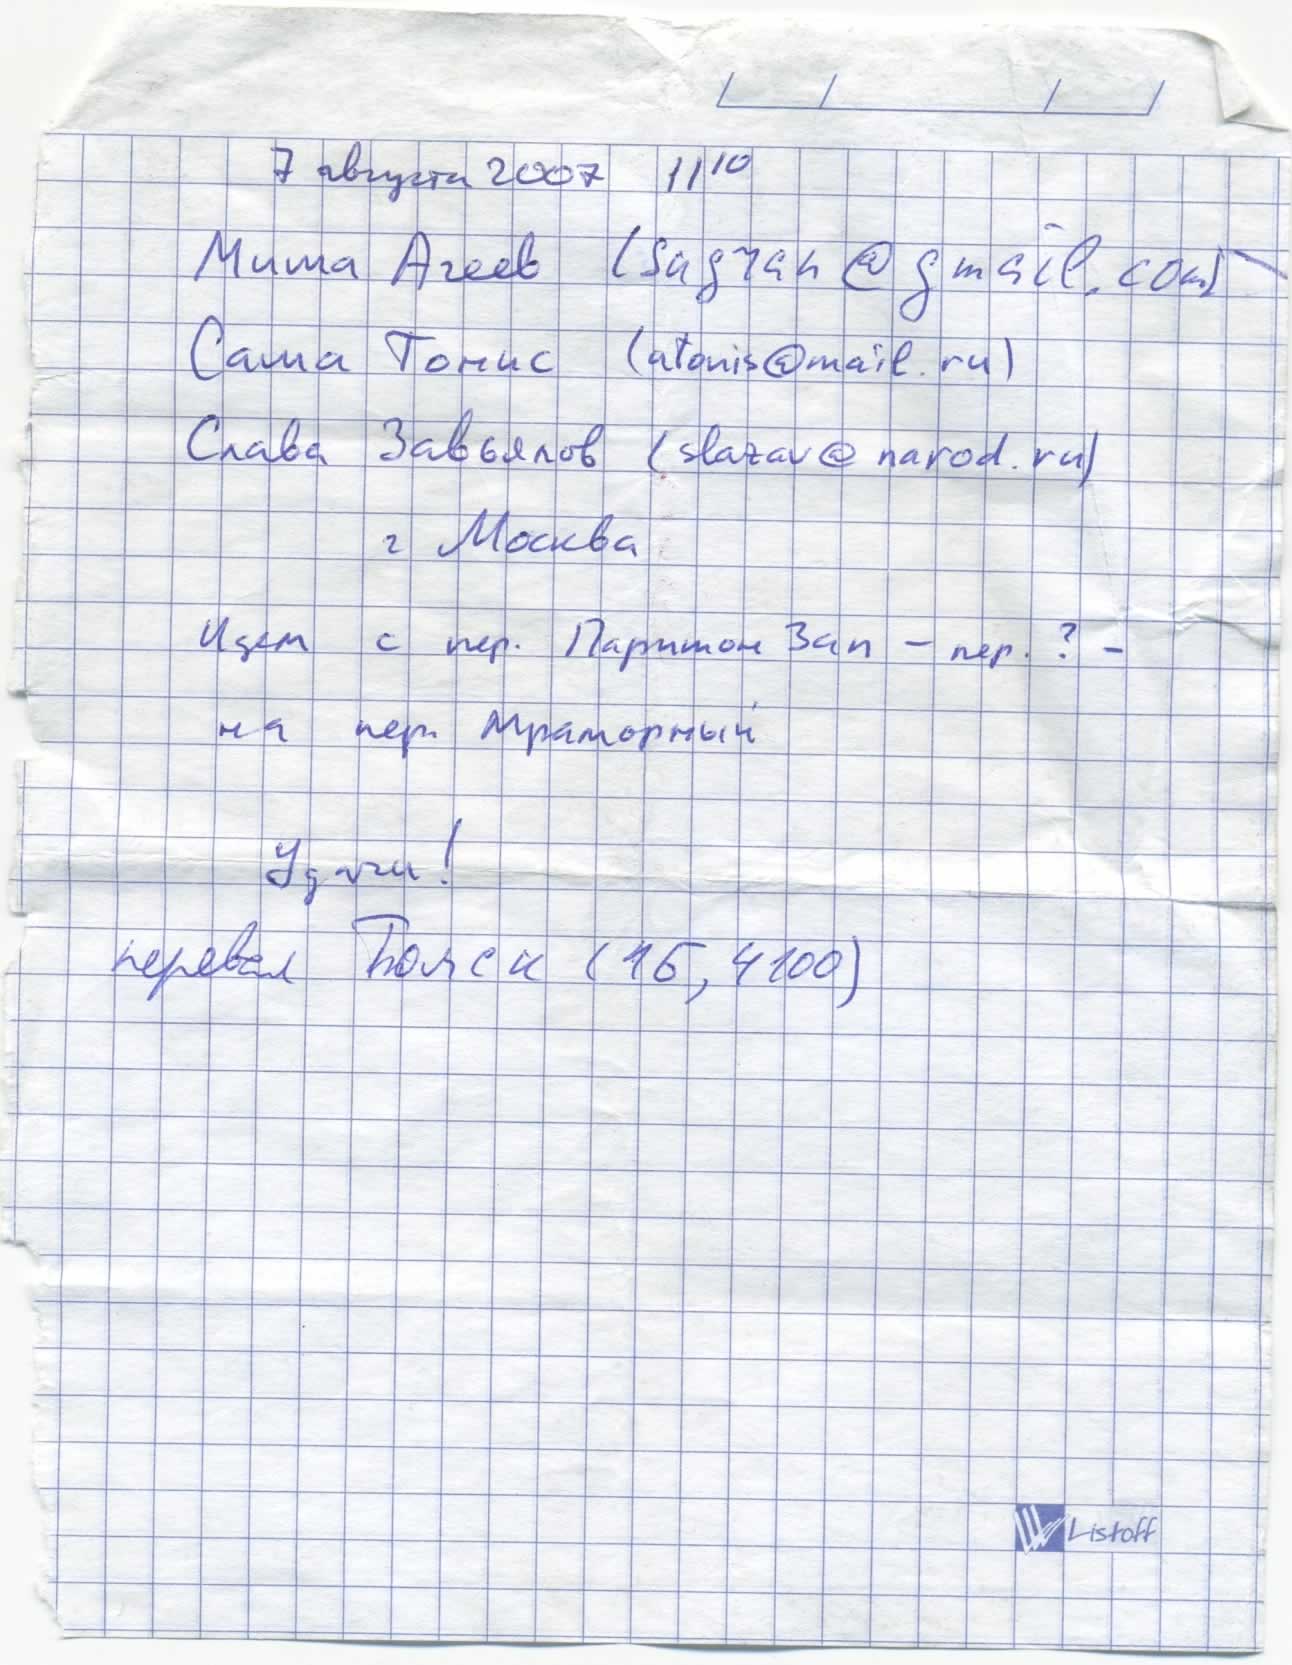 7 августа 2007 11¹⁰
Миша Агеев (sagran@gmail.com)
Саша Тонис (atonis@mail.ru)
Слава Завьялов (slazav@narod.ru)
г Москва
Идем с пер. Паритон Зап – пер. ? –
на пер. Мраморный
Удачи!
перевал (1Б, 4100)
Listoff